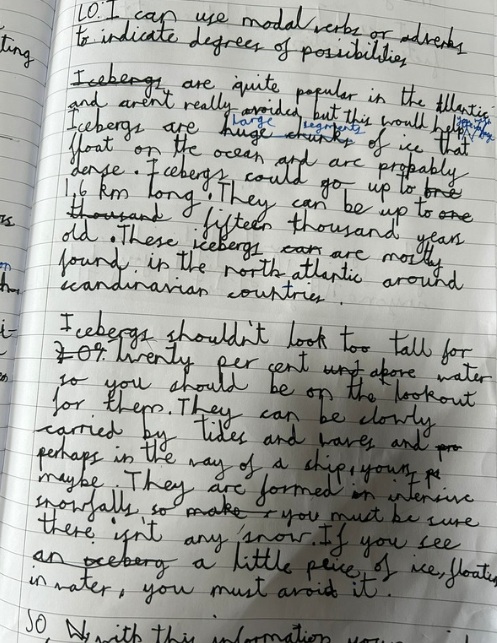 ting
LO. I can use modal verbs or adverbs
to indicate degrees of possibilities
Icebergs are quite popular in the Atlantic
and aren't really avoided, but this would help
Large segments
Icebergs are huge chunks of ice that
float on the ocean and are probably
dense. Icebergs could go up to one
1.6 km long. They can be up to one
thousand fifteen thousand years
old. These icebergs can are mostly
found in the north atlantic around
scandinavian countries.
Icebergs shouldn't look too tall for
20% twenty per cent above water
so you should be on the lookout
for them. They can be slowly
carried by tides and waves and
perhaps in the way of a ship, yours
maybe. They are formed in intensive
snowfalls so make you must be sure
there isn't any snow. If you see
an iceberg a little peice of ice, floating
in water, you must avoid it.
So with this information